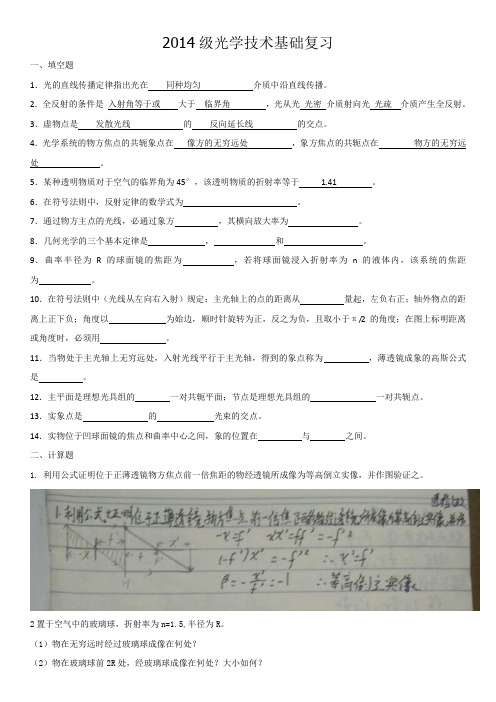 2014级光学技术基础复习
一、填空题
1．光的直线传播定律指出光在 同种均匀 介质中沿直线传播。
2．全反射的条件是 入射角等于或 大于 临界角 ，光从光 光密 介质射向光 光疏 介质产生全反射。
3．虚物点是 发散光线 的 反向延长线 的交点。
4．光学系统的物方焦点的共轭象点在 像方的无穷远处 ，象方焦点的共轭点在 物方的无穷远
处 。
5．某种透明物质对于空气的临界角为45°，该透明物质的折射率等于 1.41 。
6．在符号法则中，反射定律的数学式为 。
7．通过物方主点的光线，必通过象方 ，其横向放大率为 。
8．几何光学的三个基本定律是 ， 和 。
9．曲率半径为 R 的球面镜的焦距为 ，若将球面镜浸入折射率为 n 的液体内，该系统的焦距
为 。
10．在符号法则中（光线从左向右入射）规定：主光轴上的点的距离从 量起，左负右正；轴外物点的距
离上正下负；角度以 为始边，顺时针旋转为正，反之为负，且取小于π/2 的角度；在图上标明距离
或角度时，必须用 。
11．当物处于主光轴上无穷远处，入射光线平行于主光轴，得到的象点称为 ，薄透镜成象的高斯公式
是 。
12．主平面是理想光具组的 一对共轭平面；节点是理想光具组的 一对共轭点。
13．实象点是 的 光束的交点。
14．实物位于凹球面镜的焦点和曲率中心之间，象的位置在 与 之间。
二、计算题
1. 利用公式证明位于正薄透镜物方焦点前一倍焦距的物经透镜所成像为等高倒立实像，并作图验证之。
1.利用公式证明位于正薄透镜物方焦点前一倍焦距的物经透镜所成像为等高倒立实像，并作
-x=f' xx'=ff'=-f'²
(-f')x'=-f'² ∴x'=f'
β=-x'/f'=-1 ∴等高倒立实像
2置于空气中的玻璃球，折射率为n=1.5,半径为R。
（1）物在无穷远时经过玻璃球成像在何处？
（2）物在玻璃球前2R处，经玻璃球成像在何处？大小如何？